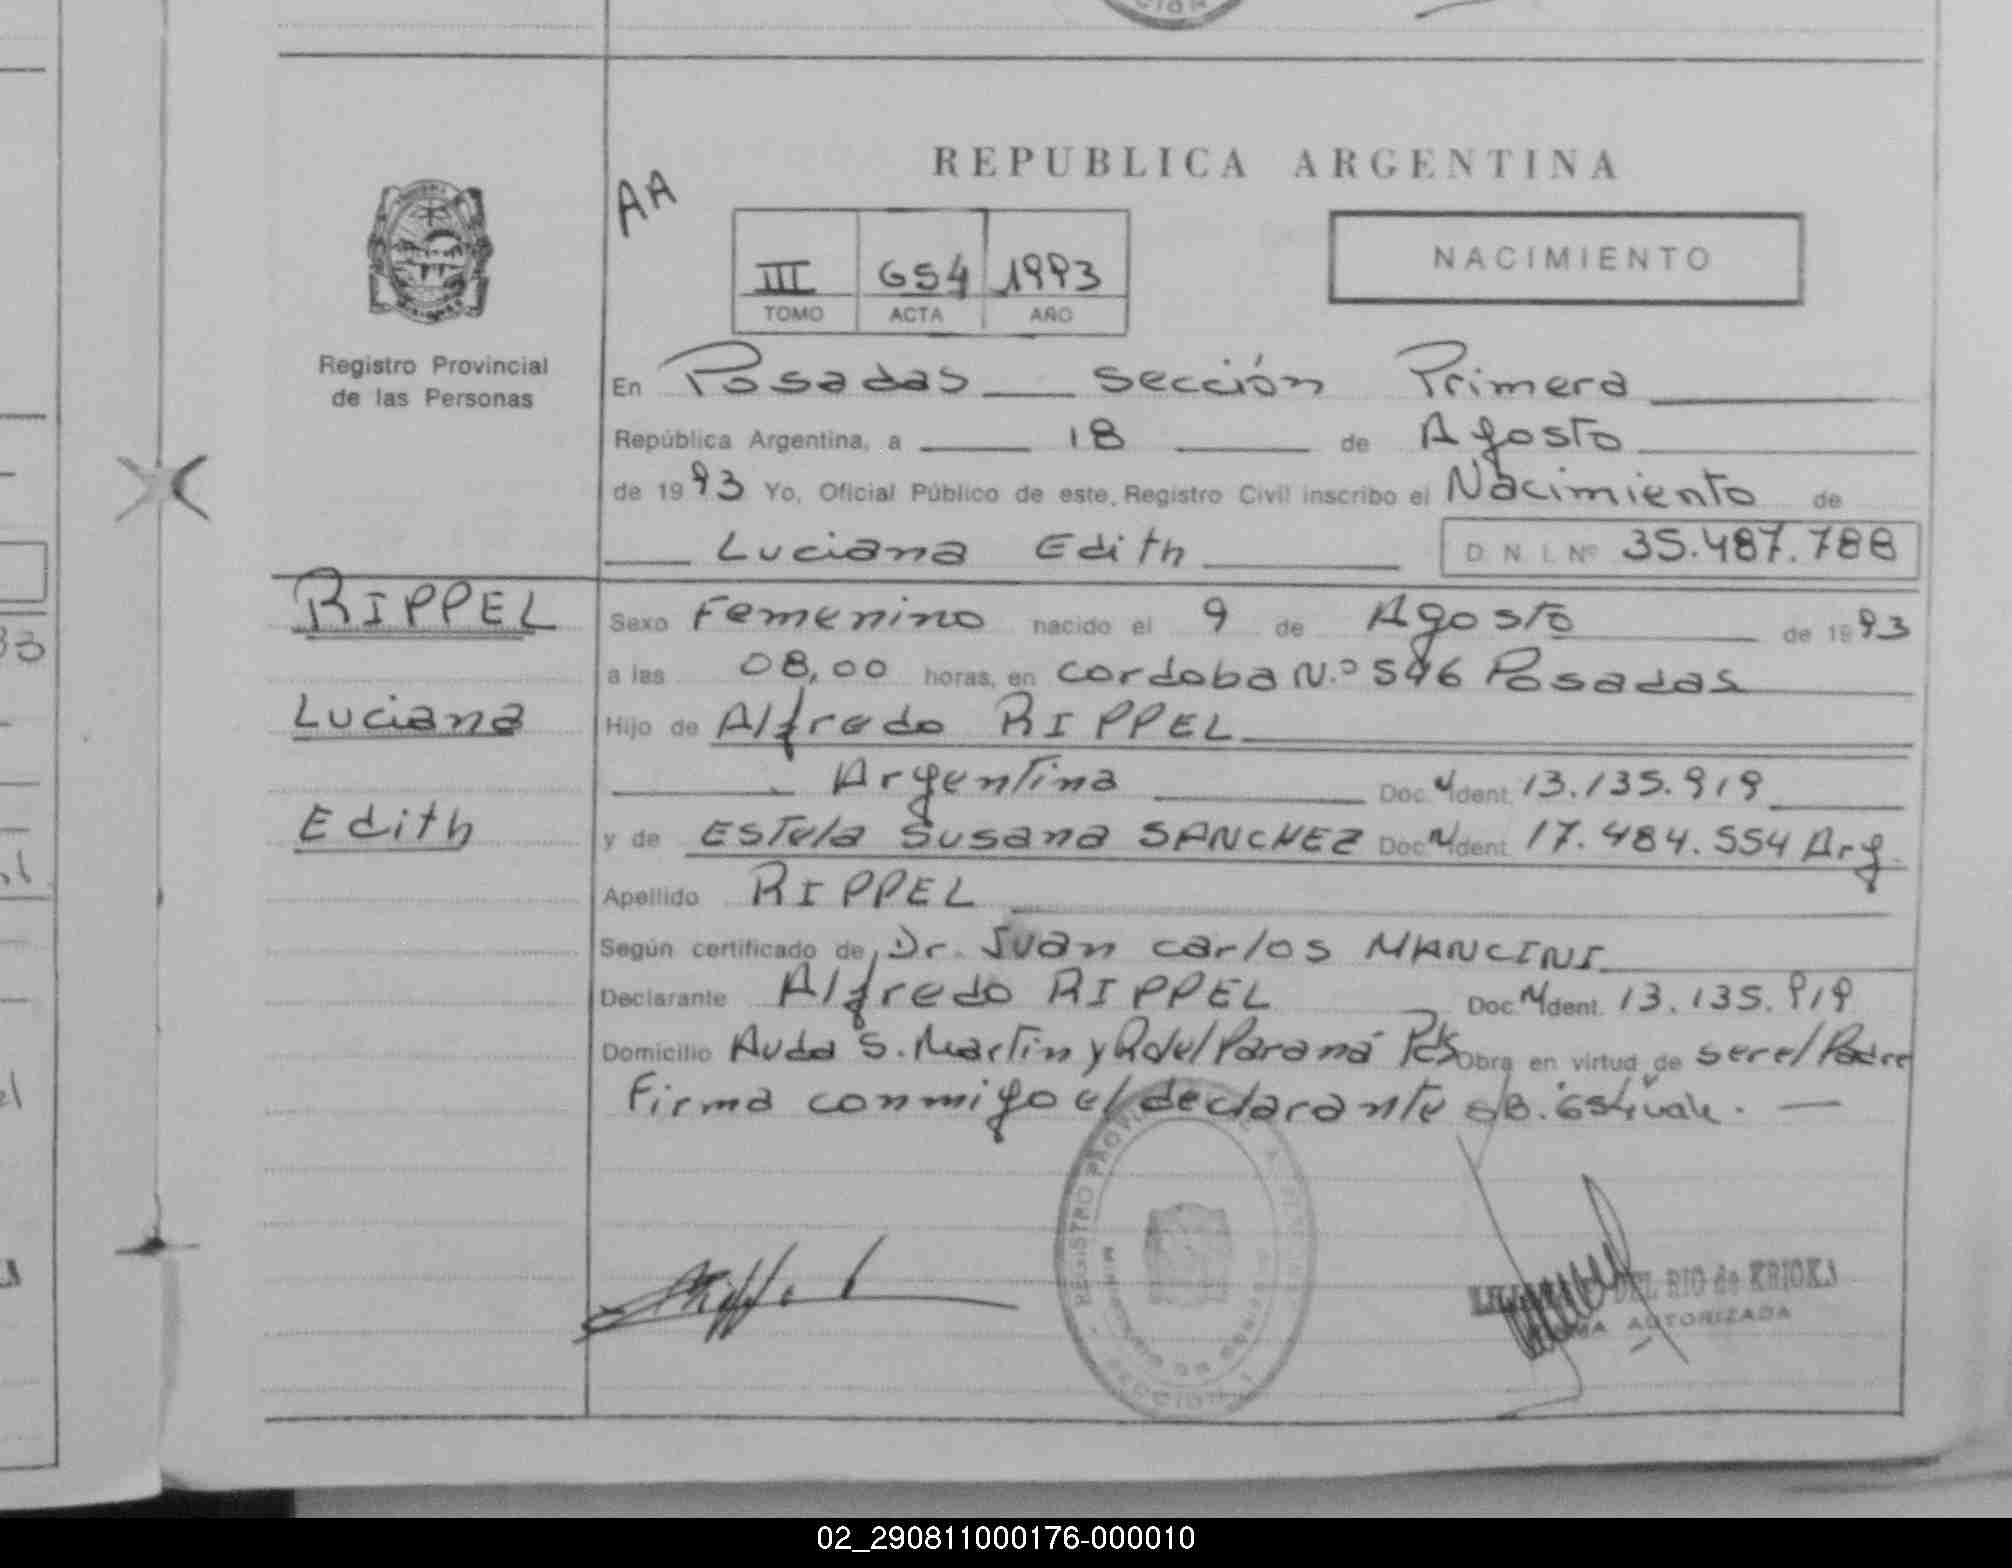 REPUBLICA ARGENTINA
AA
NACIMIENTO
III 654 1993
TOMO ACTA AÑO
Registro Provincial
de las Personas
En Posadas sección Primera
República Argentina, a 18 de Agosto
de 1993 Yo, Oficial Público de este, Registro Civil inscribo el Nacimiento de
Luciana Edith D. N. I. Nº 35.487.788
RIPPEL
Luciana
Edith
Sexo Femenino nacido el 9 de Agosto de 1993
a las 08,00 horas, en cordoba N.º 546 Posadas
Hijo de Alfredo RIPPEL
Argentina Doc. N Ident. 13.135.919
y de Estela Susana SANCHEZ Doc. N Ident. 17.484.554 Arg.
Apellido RIPPEL
Según certificado de Dr. Juan carlos MANCINI
Declarante Alfredo RIPPEL Doc. N Ident. 13.135.919
Domicilio Avda S. Martin y R del Paraná Pds Obra en virtud de ser el Padre
Firma conmigo el declarante
REGISTRO
SECCION 1
DEL RIO de KRIOKA
AUTORIZADA
02_290811000176-000010